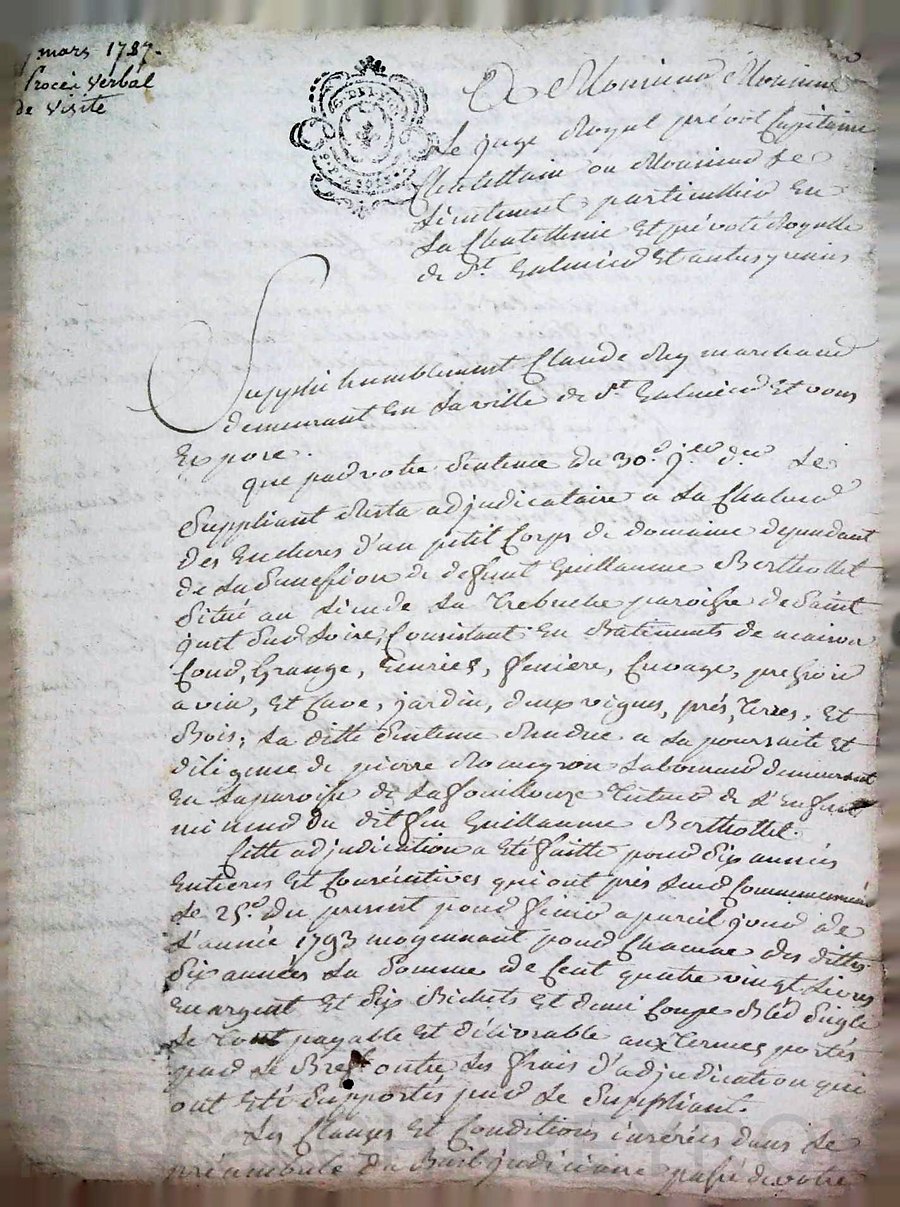 mars 1787.
Procès verbal
de visite
A Monsieur Monsieur
Le juge Royal prévot Capitaine
Chatellain ou Monsieur Le
Lieutenant particullier En
La Chatellenie Et prévoté Royalle
de St Galmier Et autres y unies
Supplie humblement Claude Rey marchand
demeurant En La ville de St Galmier Et vous
Expose.
que par votre Sentence du 30e Le
Suppliant Resta adjudicataire a La Chaleur
des Encheres d'un petit Corps de domaine dependant
de La Succession de defunt Guillaume Berthollet
Situé au Lieu de La Trebuche paroisse de Saint
just Sur Loire, Consistant En Batiments de maison
Cour, Grange, Ecuries, feniere, Cuvage, pressoir
a vin, Et Cave, jardin, deux vignes, prés, Terres, Et
Bois; La ditte Sentence Rendue a La poursuite Et
diligence de pierre Romeyron Laboureur demeurant
En La paroisse de Lafouillouze Tuteur de L'Enfant
mineur du dit feu Guillaume Berthollet.
Cette adjudication a Eté faitte pour Six années
Entieres Et Consécutives qui ont pris Leur Commencement
Le 25e du present pour finir a pareil jour de
L'année 1793 moyennant pour Chacune des dittes
Six années La Somme de Cent quatre vingt Livres
En argent Et Six Bichets Et demi Coupe Bled Seigle
Le Tout payable Et délivrable aux Termes portés
par Le Bref outre Les frais d'adjudication qui
ont Eté Supportés par Le Suppliant.
Les Clauses Et Conditions insérées dans Le
préambule du Bail judiciaire passé de votre